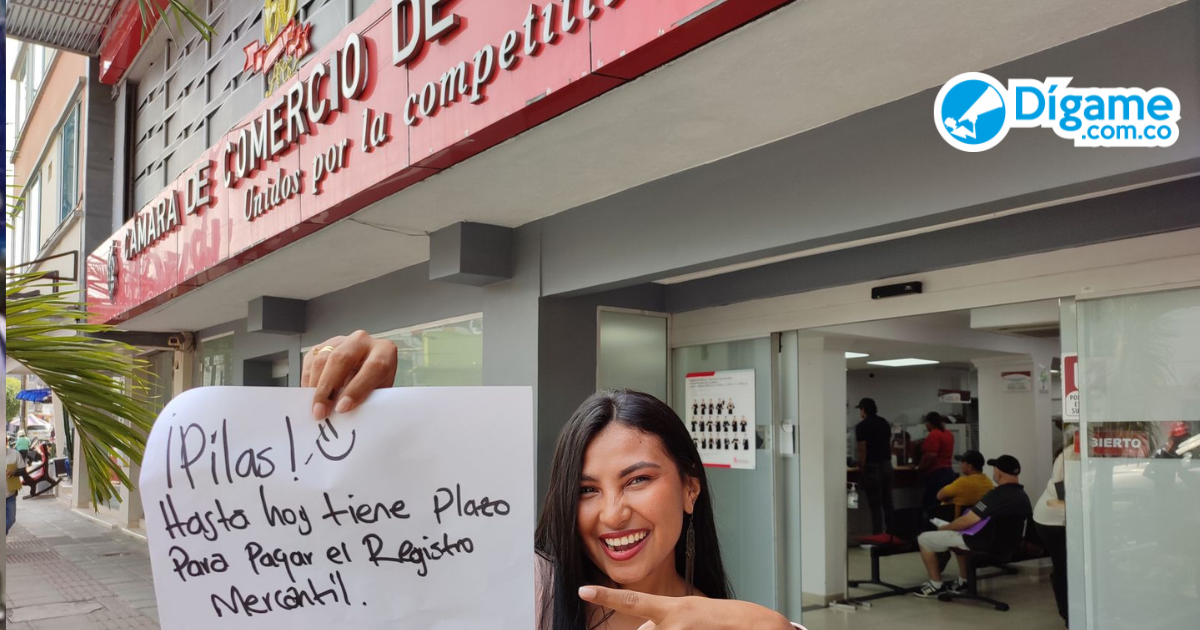 CÁMARA DE COMERCIO DE
Unidos por la
Dígame
.com.co
¡Pilas!
Hasta hoy tiene Plazo
Para Pagar el Registro
Mercantil.
BIERTO